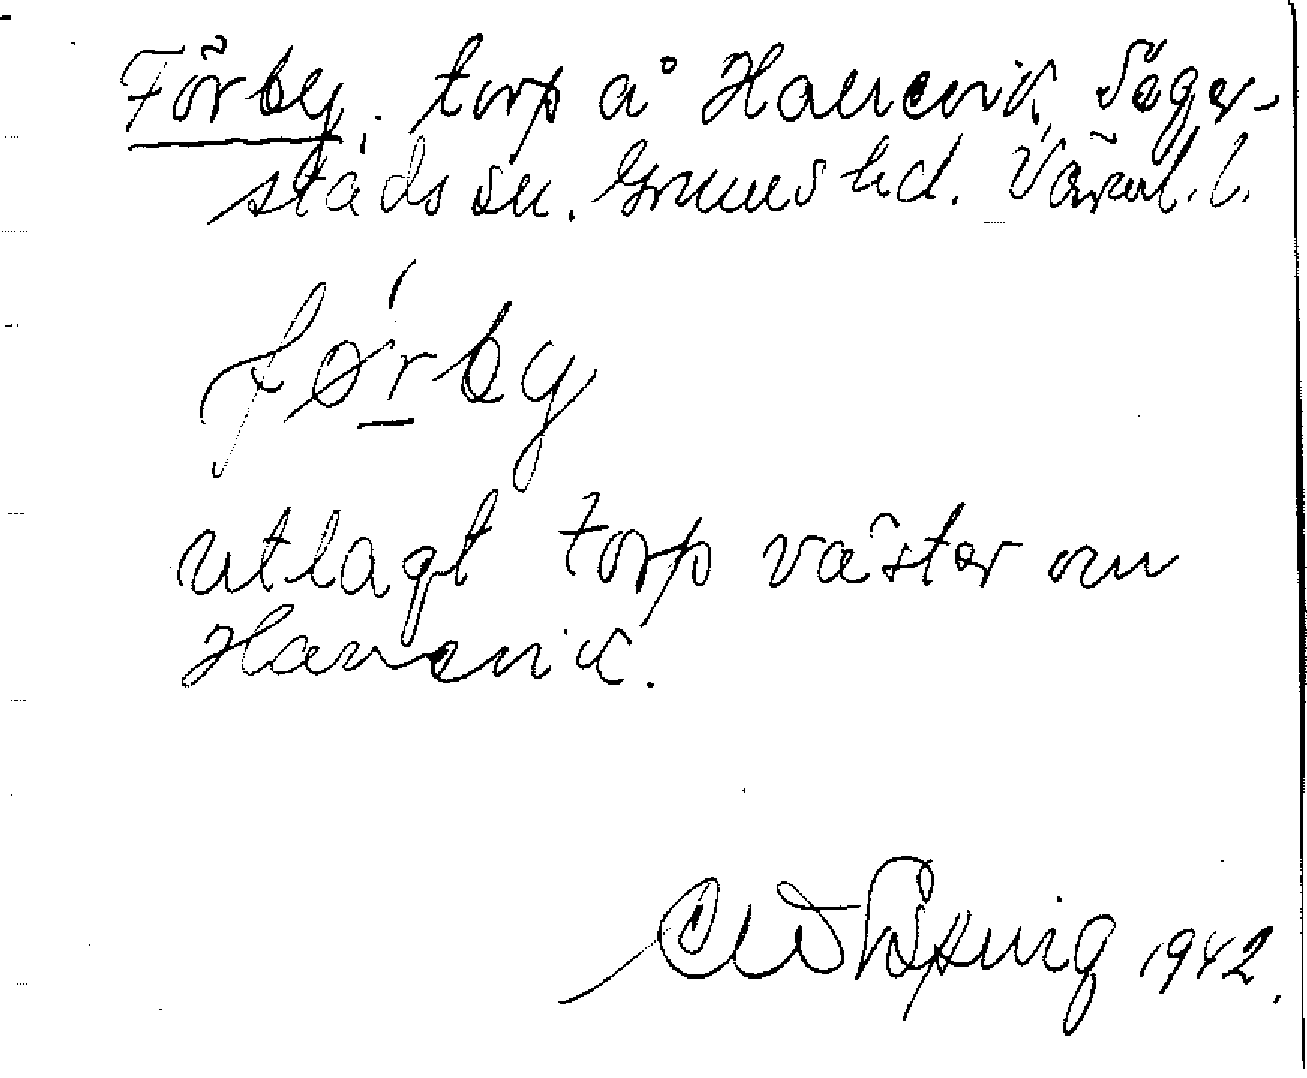 Förby, torp å Hawenvik, Säger-
stads sn. Grums hd. Värml. l.
førby
utlagt torp väster om
Hawenvik.
1942.